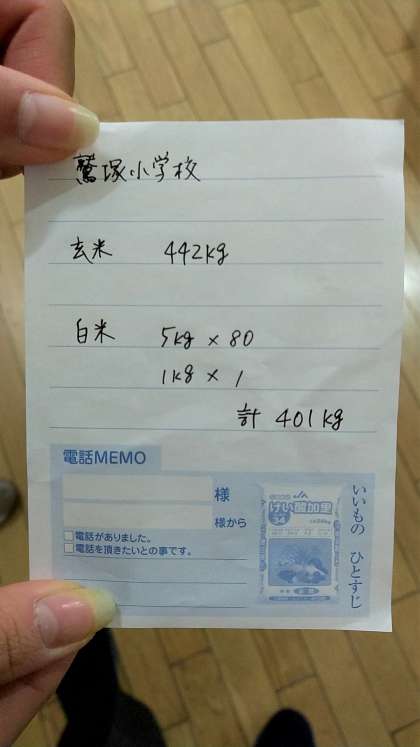 鷲塚小学校
玄米 442kg
白米 5kg × 80
1kg × 1
計 401kg
電話MEMO
様
様から
□電話がありました。
□電話を頂きたいとの事です。
JA
けい酸加里
いいもの ひとすじ